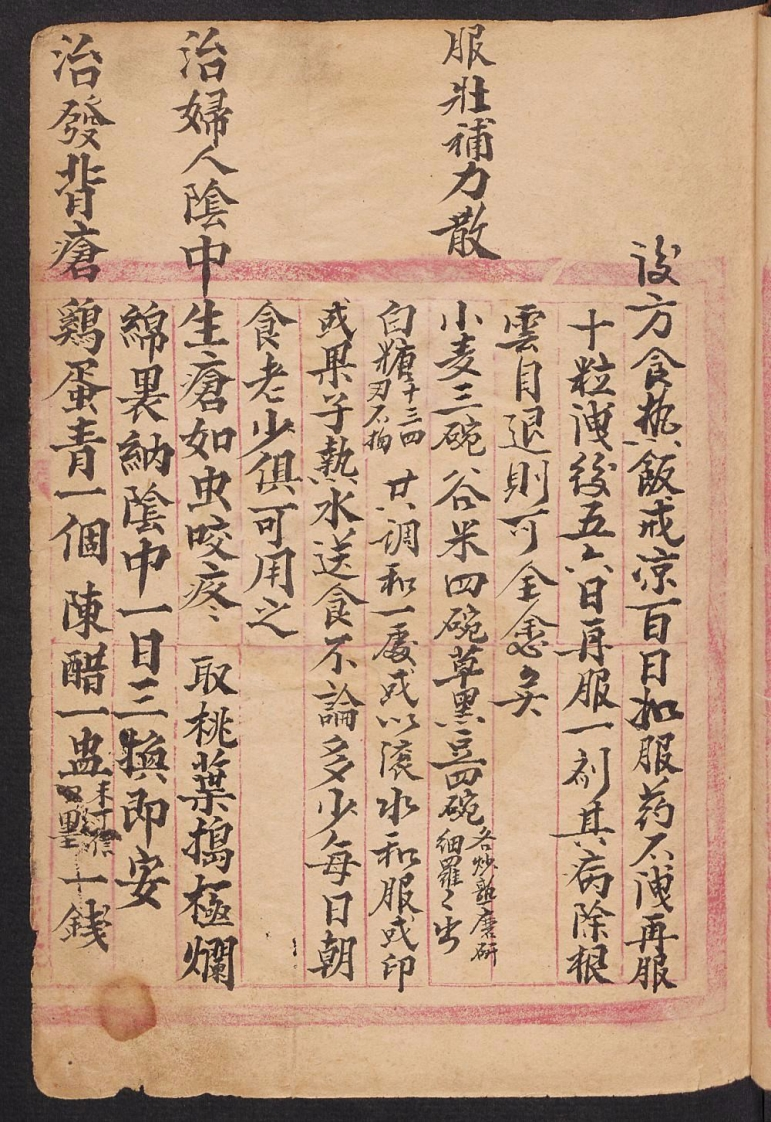 後方食热飯戒凉百日如服药不洩再服
十粒洩後五六日再服一剂其病除根
雲目退則可全愈矣
服壯補力散
小麦三碗谷米四碗草黑豆四碗各炒熟磨研細羅々出
白糖十三四 共調和一處或以滚水和服或印
或果子熱水送食不論多少每日朝
食老少俱可用之
治婦人陰中生瘡如虫咬疼 取桃葉搗極爛
綿裹納陰中一日三换即安
治發背瘡
鷄蛋青一個 陳醋一盅 墨一錢